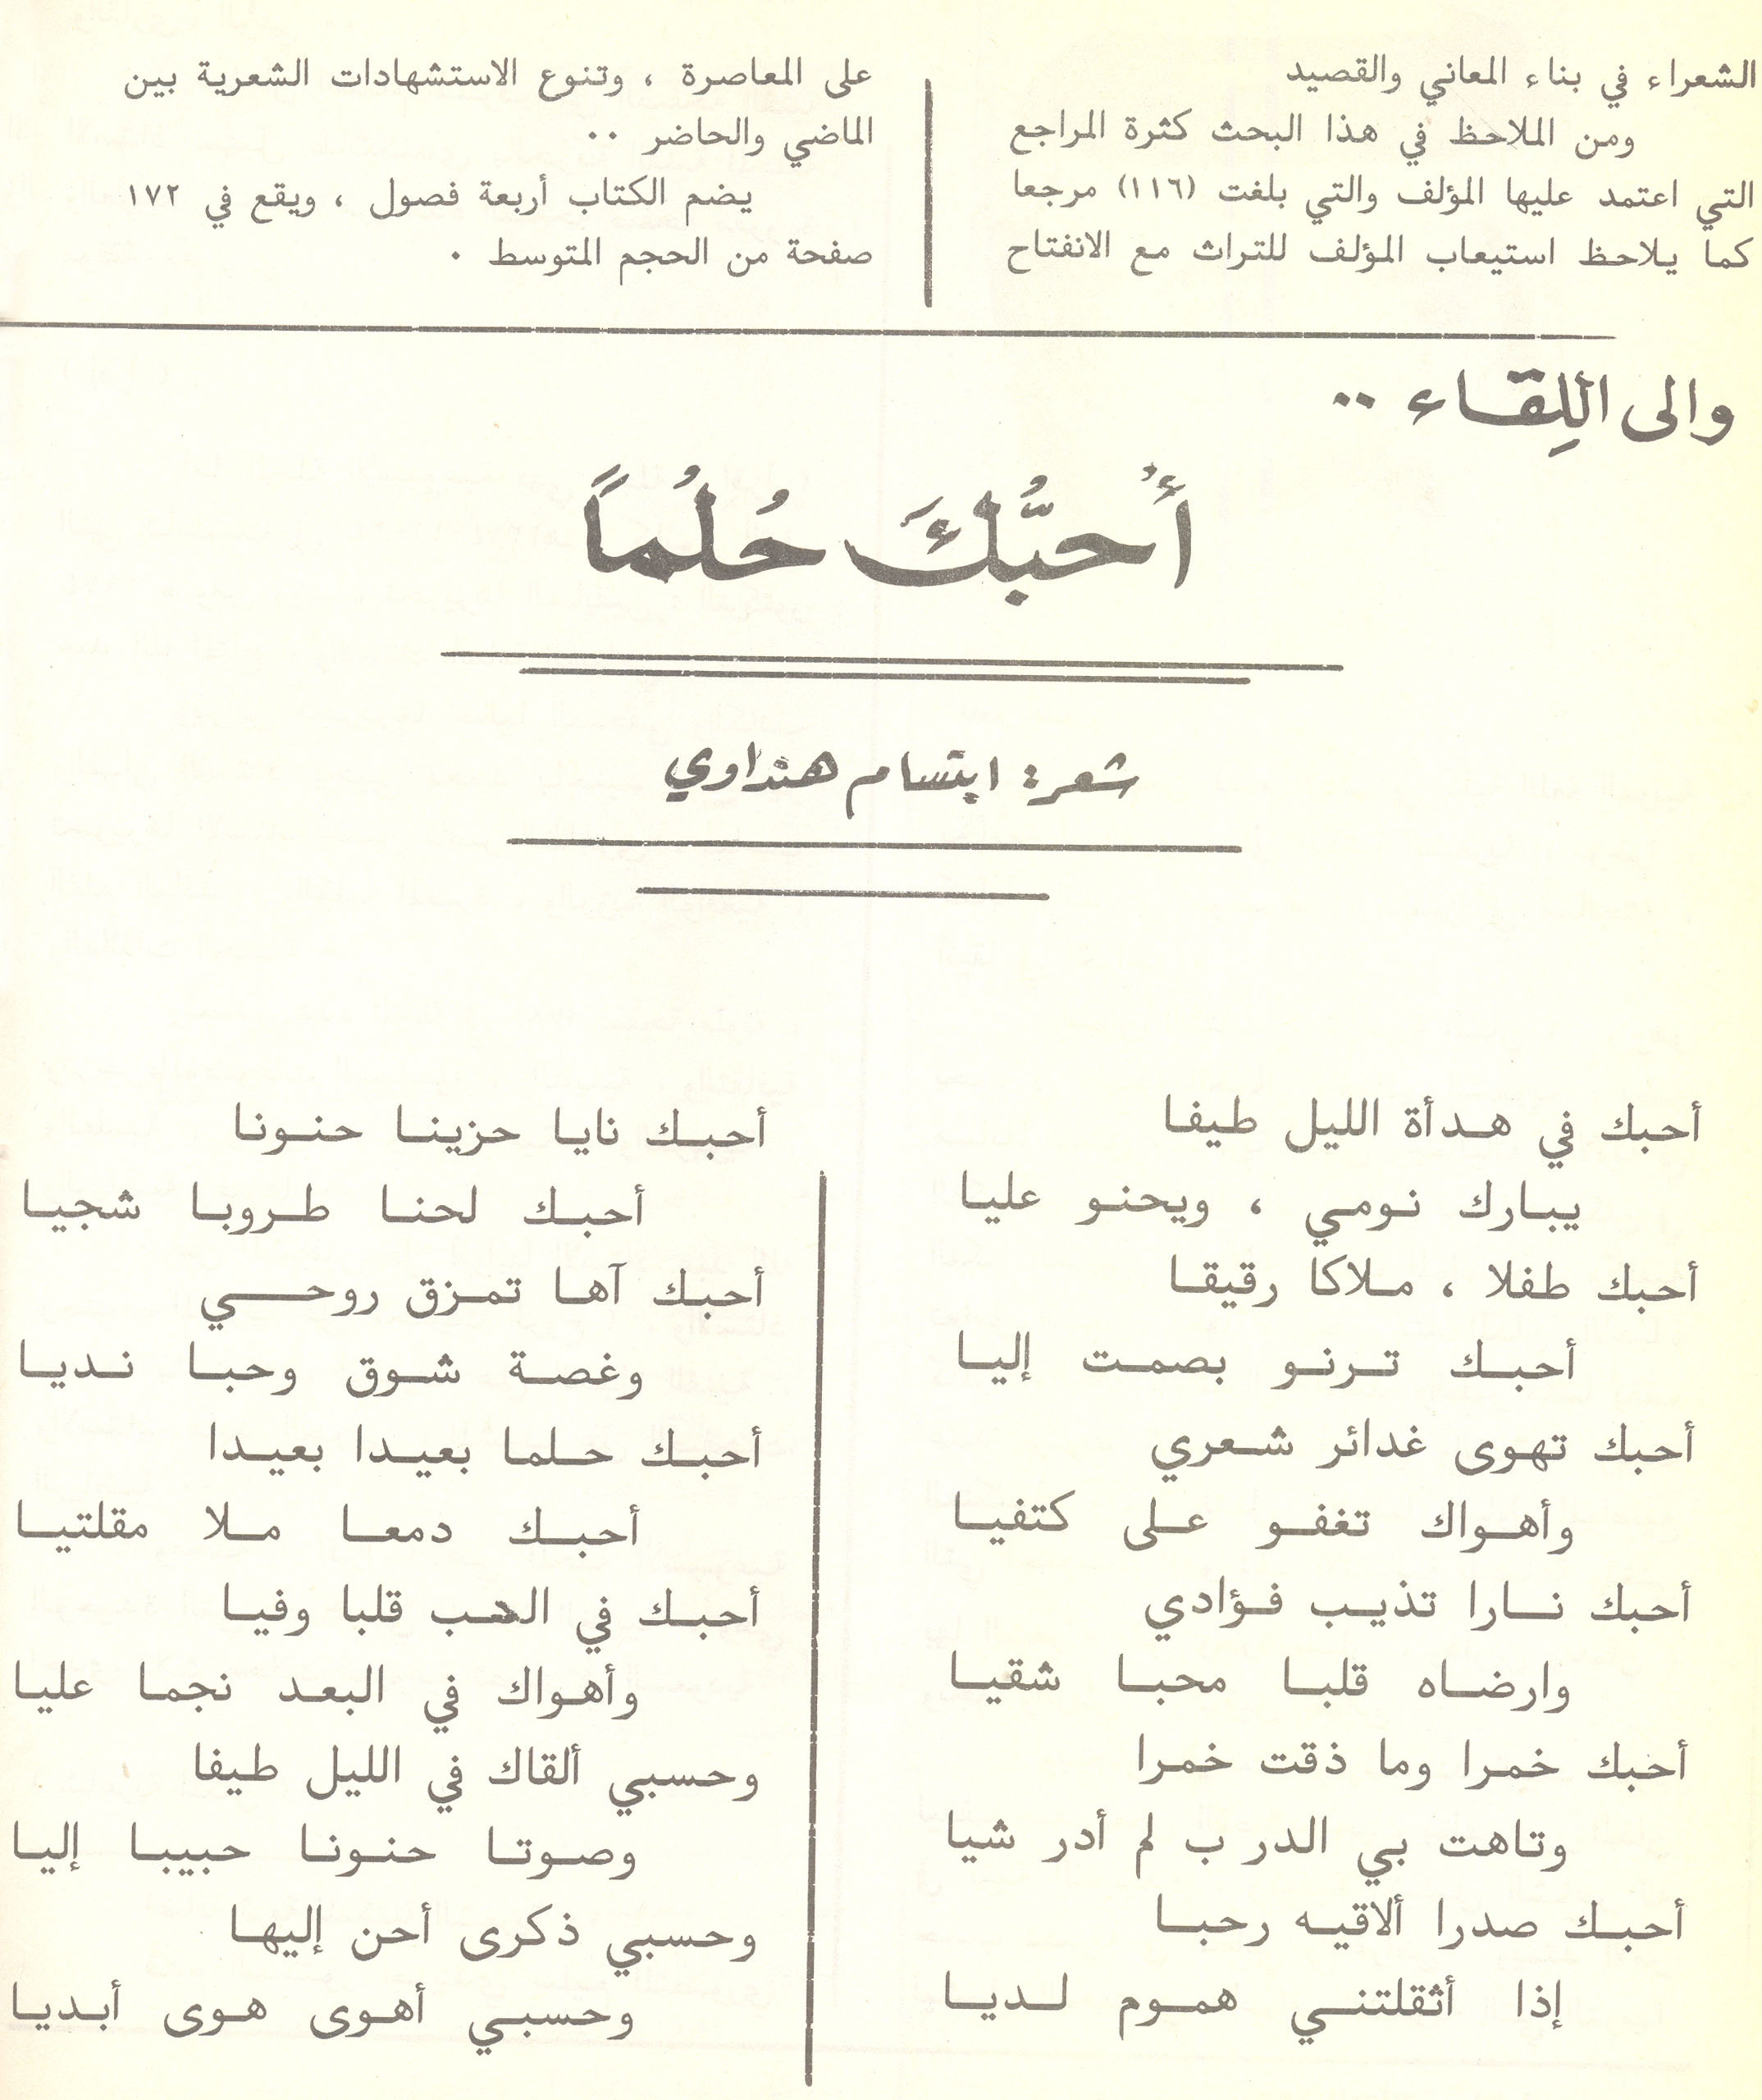 الشعراء في بناء المعاني والقصيد
ومن الملاحظ في هذا البحث كثرة المراجع
التي اعتمد عليها المؤلف والتي بلغت (١١٦) مرجعا
كما يلاحظ استيعاب المؤلف للتراث مع الانفتاح
على المعاصرة ، وتنوع الاستشهادات الشعرية بين
الماضي والحاضر ٠٠
يضم الكتاب أربعة فصول ، ويقع في ١٧٢
صفحة من الحجم المتوسط ٠
والى اللِقاء ..
أُحبُّكَ حُلُماً
شعر: ابتسام هنداوي
أحبك في هدأة الليل طيفا
يبارك نومي ، ويحنو عليا
أحبك طفلا ، ملاكا رقيقا
أحبك ترنو بصمت إليا
أحبك تهوى غدائر شعري
وأهواك تغفو على كتفيا
أحبك نارا تذيب فؤادي
وارضاه قلبا محبا شقيا
أحبك خمرا وما ذقت خمرا
وتاهت بي الدر ب لم أدر شيا
أحبك صدرا ألاقيه رحبا
إذا أثقلتني هموم لديا
أحبك نايا حزينا حنونا
أحبك لحنا طروبا شجيا
أحبك آها تمزق روحي
وغصة شوق وحبا نديا
أحبك حلما بعيدا بعيدا
أحبك دمعا ملا مقلتيا
أحبك في قلبا وفيا
وأهواك في البعد نجما عليا
وحسبي ألقاك في الليل طيفا
وصوتا حنونا حبيبا إليا
وحسبي ذكرى أحن إليها
وحسبي أهوى هوى أبديا